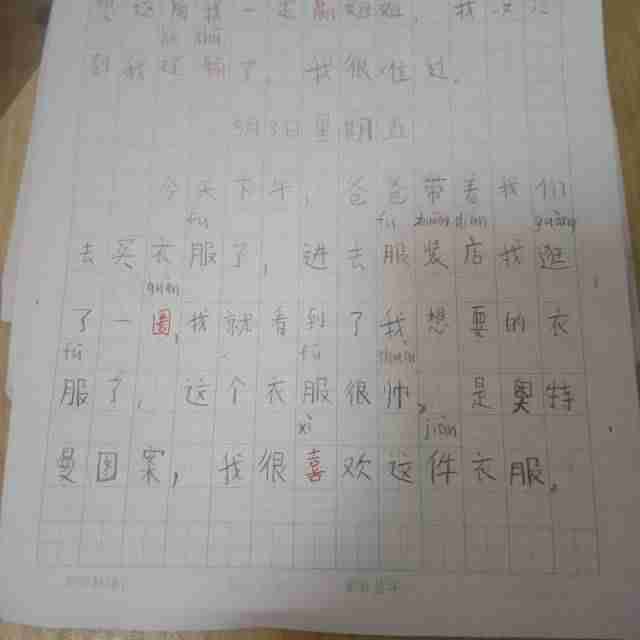 我一
到我 了，我很难过。
5月3日星期五
今天下午，爸爸带着我们
fú fú zhuāng diàn guàng
去买衣服了，进去服装店我逛
quān
了一圈，我就看到了我想要的衣
fú fú shuài
服了，这个衣服很帅，是奥特
xǐ jiàn
曼图案，我很喜欢这件衣服。